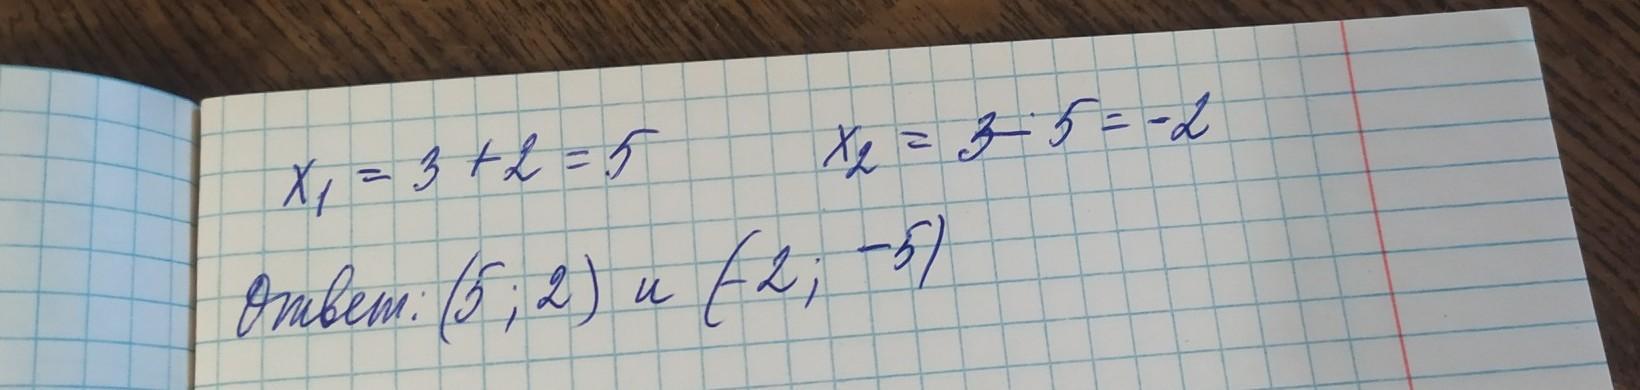 x₁ = 3 + 2 = 5 x₂ = 3 - 5 = -2
Ответ: (5; 2) и (-2; -5)